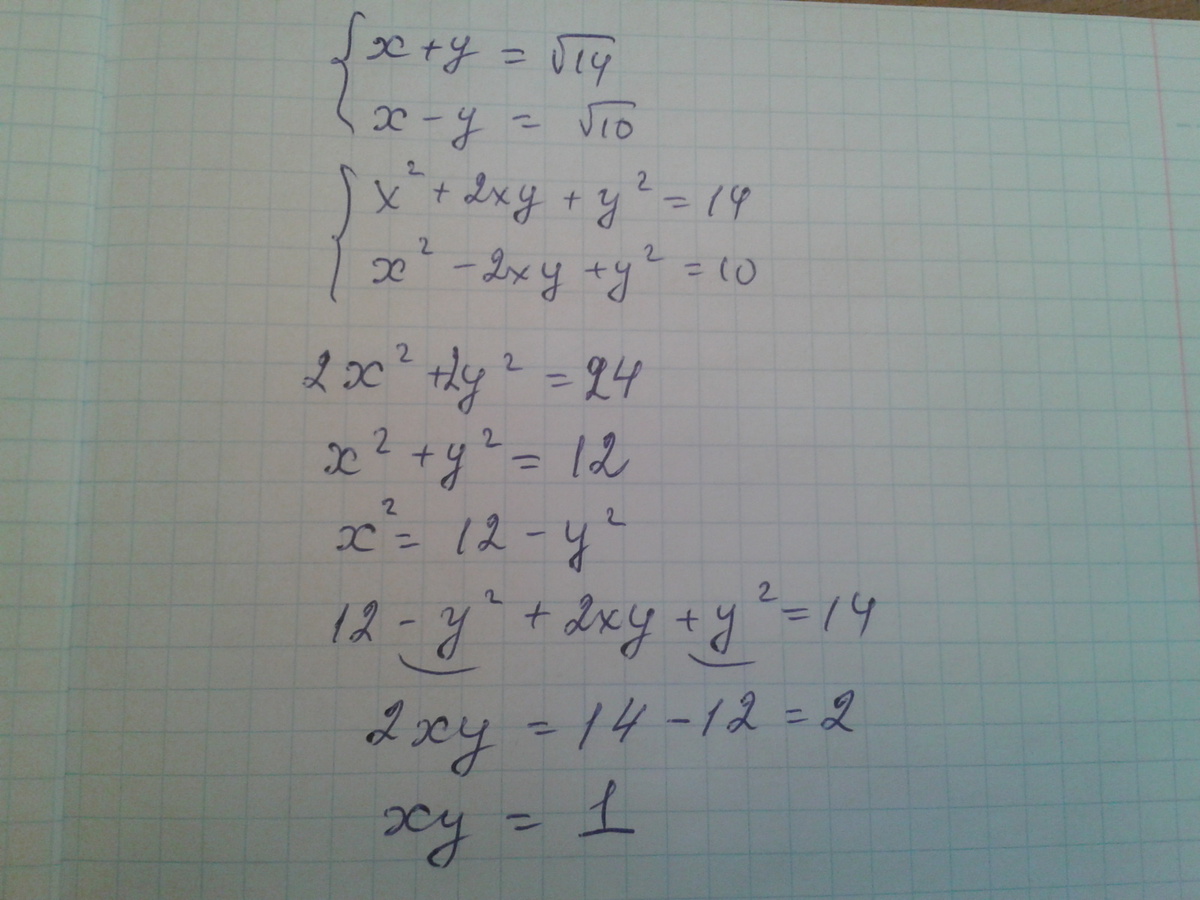 x + y = √14
x - y = √10
x² + 2xy + y² = 14
x² - 2xy + y² = 10
2x² + 2y² = 24
x² + y² = 12
x² = 12 - y²
12 - y² + 2xy + y² = 14
2xy = 14 - 12 = 2
xy = 1